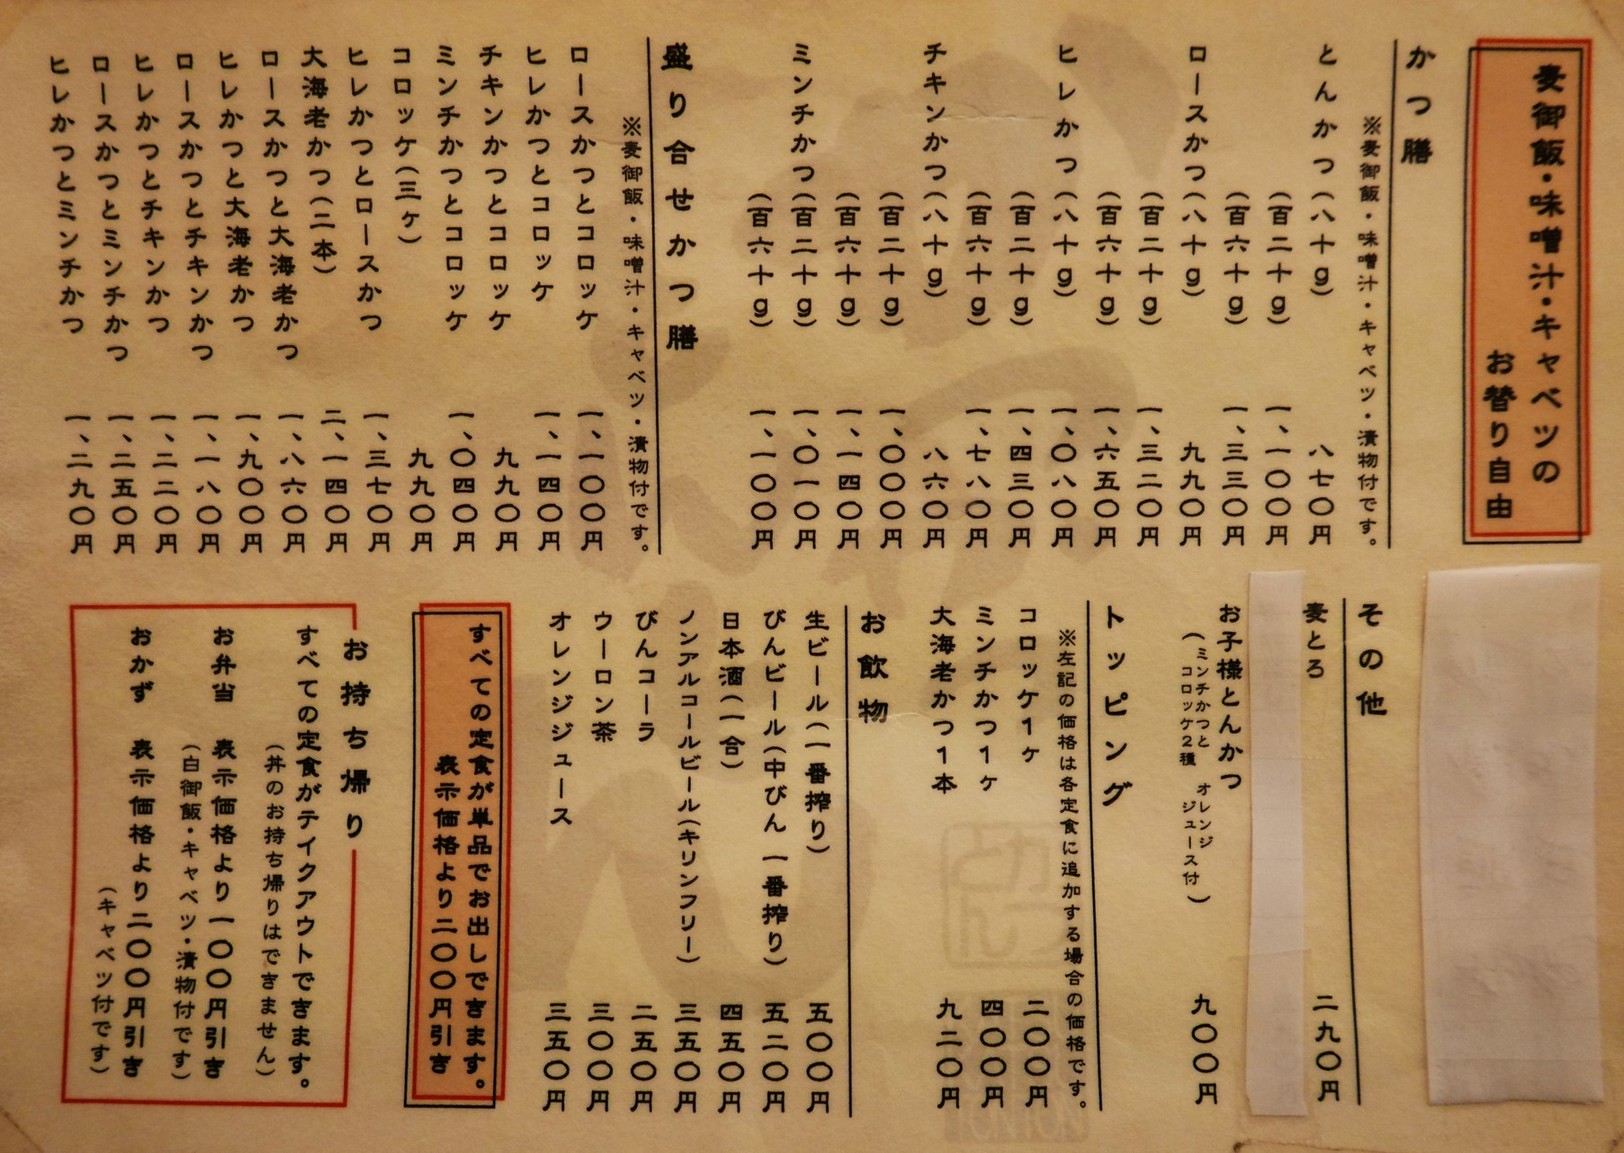 麦御飯・味噌汁・キャベツの
お替り自由
かつ膳
※麦御飯・味噌汁・キャベツ・漬物付です。
とんかつ(八十g) 八七〇円
(百二十g) 一、一〇〇円
(百六十g) 一、三三〇円
ロースかつ(八十g) 九九〇円
(百二十g) 一、三二〇円
(百六十g) 一、六五〇円
ヒレかつ(八十g) 一、〇八〇円
(百二十g) 一、四三〇円
(百六十g) 一、七八〇円
チキンかつ(八十g) 八六〇円
(百二十g) 一、〇〇〇円
(百六十g) 一、一四〇円
ミンチかつ(百二十g) 一、〇一〇円
(百六十g) 一、一〇〇円
盛り合せかつ膳
※麦御飯・味噌汁・キャベツ・漬物付です。
ロースかつとコロッケ 一、一〇〇円
ヒレかつとコロッケ 一、一四〇円
チキンかつとコロッケ 九九〇円
ミンチかつとコロッケ 一、〇四〇円
コロッケ(三ヶ) 九九〇円
ヒレかつとロースかつ 一、三七〇円
大海老かつ(二本) 二、一四〇円
ロースかつと大海老かつ 一、八六〇円
ヒレかつと大海老かつ 一、九〇〇円
ロースかつとチキンかつ 一、一八〇円
ヒレかつとチキンかつ 一、二二〇円
ロースかつとミンチかつ 一、二五〇円
ヒレかつとミンチかつ 一、二九〇円
その他
麦とろ 二九〇円
お子様とんかつ 九〇〇円
(ミンチかつと オレンジ
コロッケ2種 ジュース付)
トッピング
※左記の価格は各定食に追加する場合の価格です。
コロッケ1ヶ 二〇〇円
ミンチかつ1ヶ 四〇〇円
大海老かつ1本 九二〇円
お飲物
生ビール(一番搾り) 五〇〇円
びんビール(中びん 一番搾り) 五二〇円
日本酒(一合) 四五〇円
ノンアルコールビール(キリンフリー) 三五〇円
びんコーラ 二五〇円
ウーロン茶 三〇〇円
オレンジジュース 三五〇円
すべての定食が単品でお出しできます。
表示価格より二〇〇円引き
お持ち帰り
すべての定食がテイクアウトできます。
(丼のお持ち帰りはできません)
お弁当 表示価格より一〇〇円引き
(白御飯・キャベツ・漬物付です)
おかず 表示価格より二〇〇円引き
(キャベツ付です)